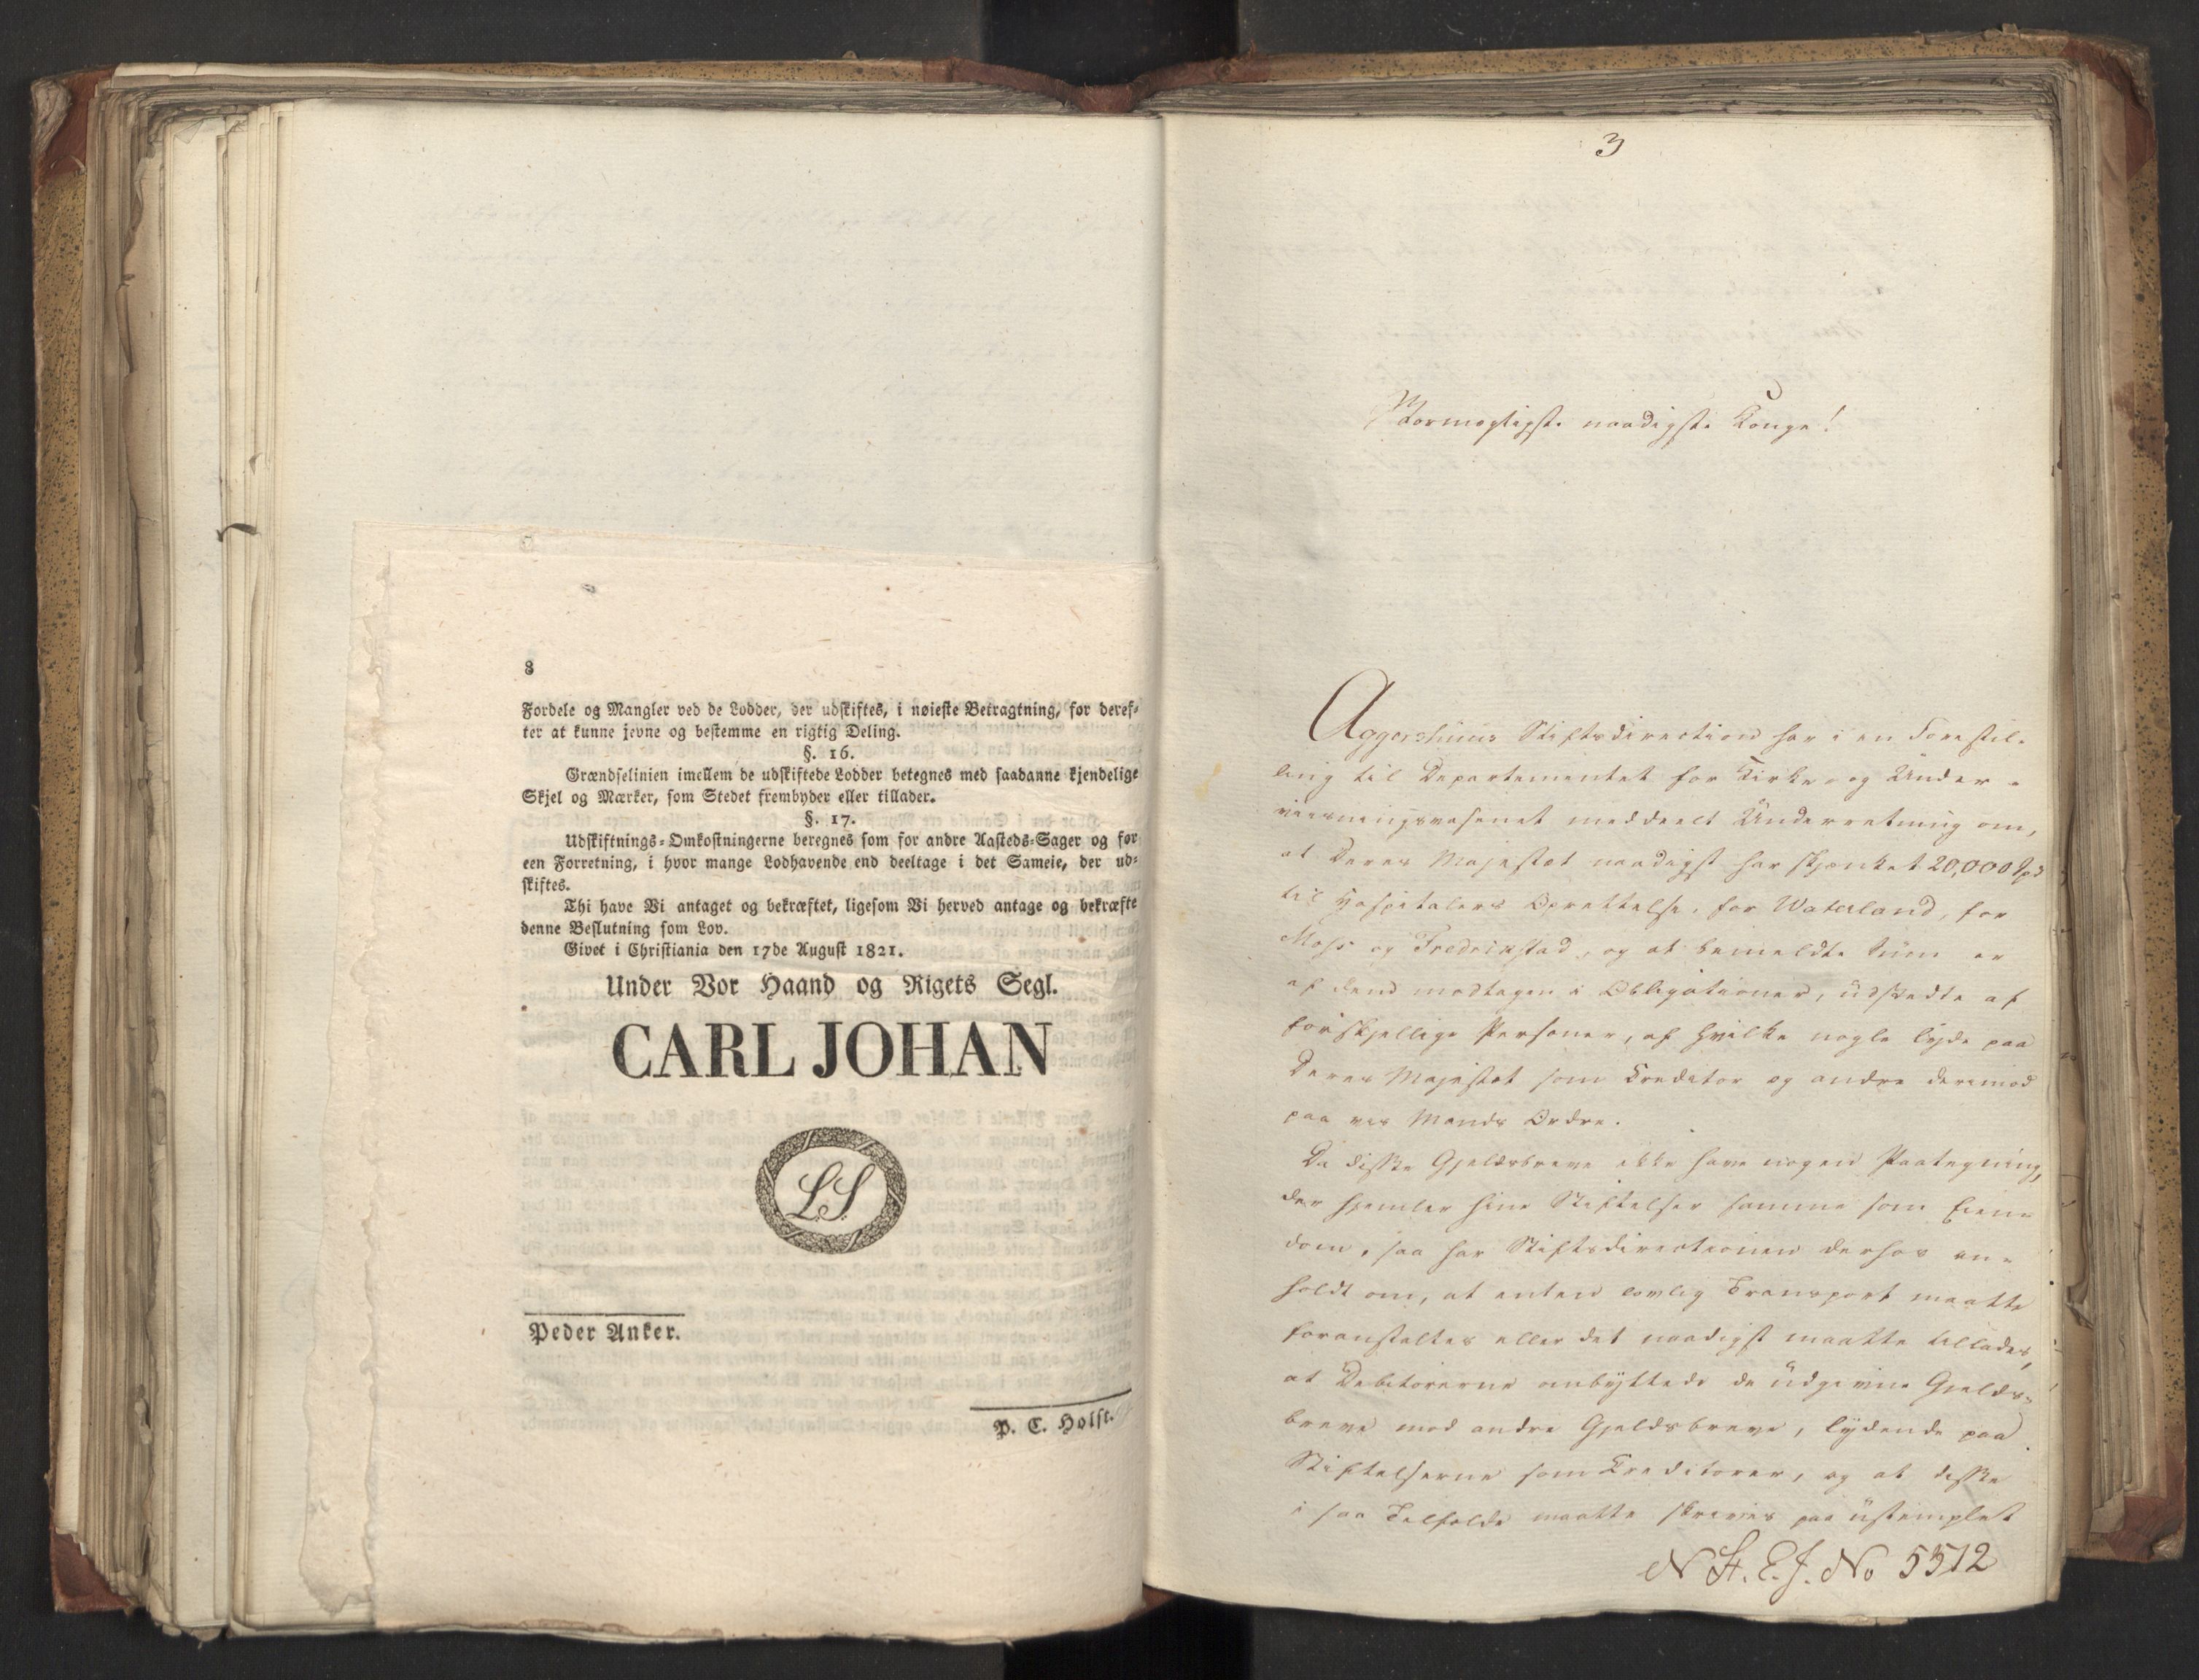 8
Fordele og Mangler ved de Lodder, der udskiftes, i nøieste Betragtning, for deref-
ter at kunne jevne og bestemme en rigtig Deling.
§. 16.
Grændselinien imellem de udskiftede Lodder betegnes med saadanne kjendelige
Skjel og Mærker, som Stedet frembyder eller tillader.
§. 17.
Udskiftnings-Omkostningerne beregnes som for andre Aasteds-Sager og for
een Forretning, i hvor mange Lodhavende end deeltage i det Sameie, der ud-
skiftes.
Thi have Vi antaget og bekræftet, ligesom Vi herved antage og bekræfte
denne Beslutning som Lov.
Givet i Christiania den 17de August 1821.
Under Vor Haand og Rigets Segl.
CARL JOHAN
L.S.
Peder Anker.
P. C. Holst.
3
Stormægtigste naadigste Konge!
Aggershuus Stiftsdirection har i en Forestil-
ling til Departementet for Kirke- og Under-
viisningsvæsenet meddeelt Underretning om,
at Deres Majestæt naadigst har skjænket 20,000 Spd
til Hospitalers Oprettelse, for Waterland, for
Moss og Fredrikstad, og at bemeldte Sum er
af dend modtagen i Obligationer, udstedte af
forskjellige Personer, af hvilke nogle lyde paa
Deres Majestæt som Creditor og andre derimod
paa vis Mands Ordre.
Da disse Gjeldsbreve ikke have nogen Paategning,
der hjemler hine Stiftelser samme som Eien-
dom, saa har Stiftsdirectionen derhos an-
holdt om, at enten lovlig Transport maatte
foranstaltes eller det naadigst maatte tillades,
at Debitorerne ombyttede de udgivne Gjelds-
breve mod andre Gjeldsbreve, lydende paa
Stiftelserne som Creditorer, og at disse
i saa Tilfælde maatte skrives paa ustemplet
N St. E. J. No 5312